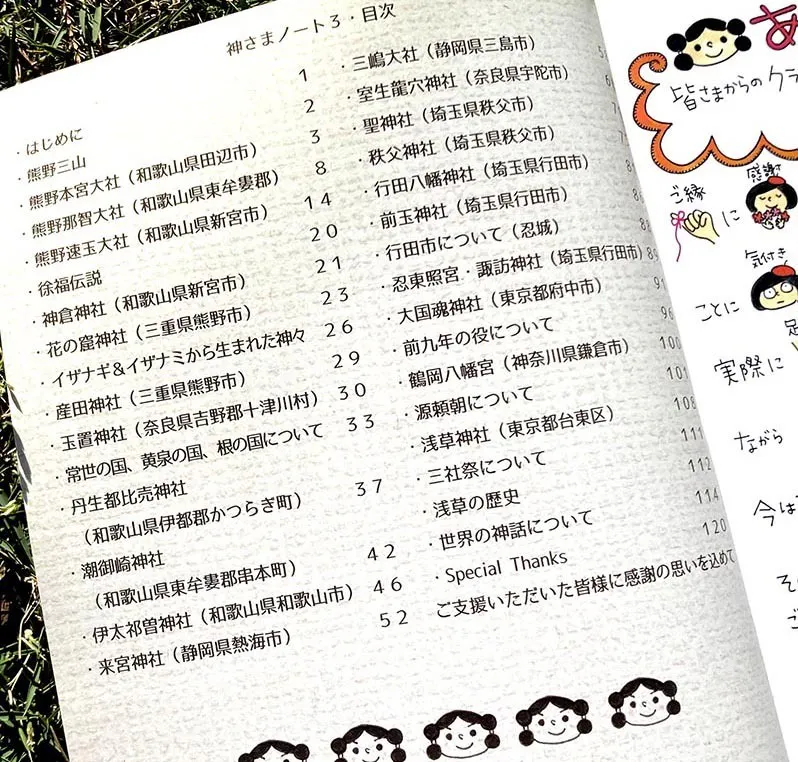 神さまノート3・目次
・はじめに 1
・熊野三山 2
・熊野本宮大社（和歌山県田辺市） 3
・熊野那智大社（和歌山県東牟婁郡） 8
・熊野速玉大社（和歌山県新宮市） 14
・徐福伝説 20
・神倉神社（和歌山県新宮市） 21
・花の窟神社（三重県熊野市） 23
・イザナギ＆イザナミから生まれた神々 26
・産田神社（三重県熊野市） 29
・玉置神社（奈良県吉野郡十津川村） 30
・常世の国、黄泉の国、根の国について 33
・丹生都比売神社
（和歌山県伊都郡かつらぎ町） 37
・潮御崎神社
（和歌山県東牟婁郡串本町） 42
・伊太祁曽神社（和歌山県和歌山市） 46
・来宮神社（静岡県熱海市） 52
・三嶋大社（静岡県三島市）
・室生龍穴神社（奈良県宇陀市）
・聖神社（埼玉県秩父市）
・秩父神社（埼玉県秩父市）
・行田八幡神社（埼玉県行田市）
・前玉神社（埼玉県行田市）
・行田市について（忍城）
・忍東照宮・諏訪神社（埼玉県行田市） 89
・大国魂神社（東京都府中市） 91
・前九年の役について 96
・鶴岡八幡宮（神奈川県鎌倉市） 100
・源頼朝について
・浅草神社（東京都台東区） 108
・三社祭について 111
・浅草の歴史 112
・世界の神話について 114
・Special Thanks 120
ご支援いただいた皆様に感謝の思いを込めて
あ
皆さまからのクラ
ご縁に感謝
気付き
ことに
実際に
ながら
今は